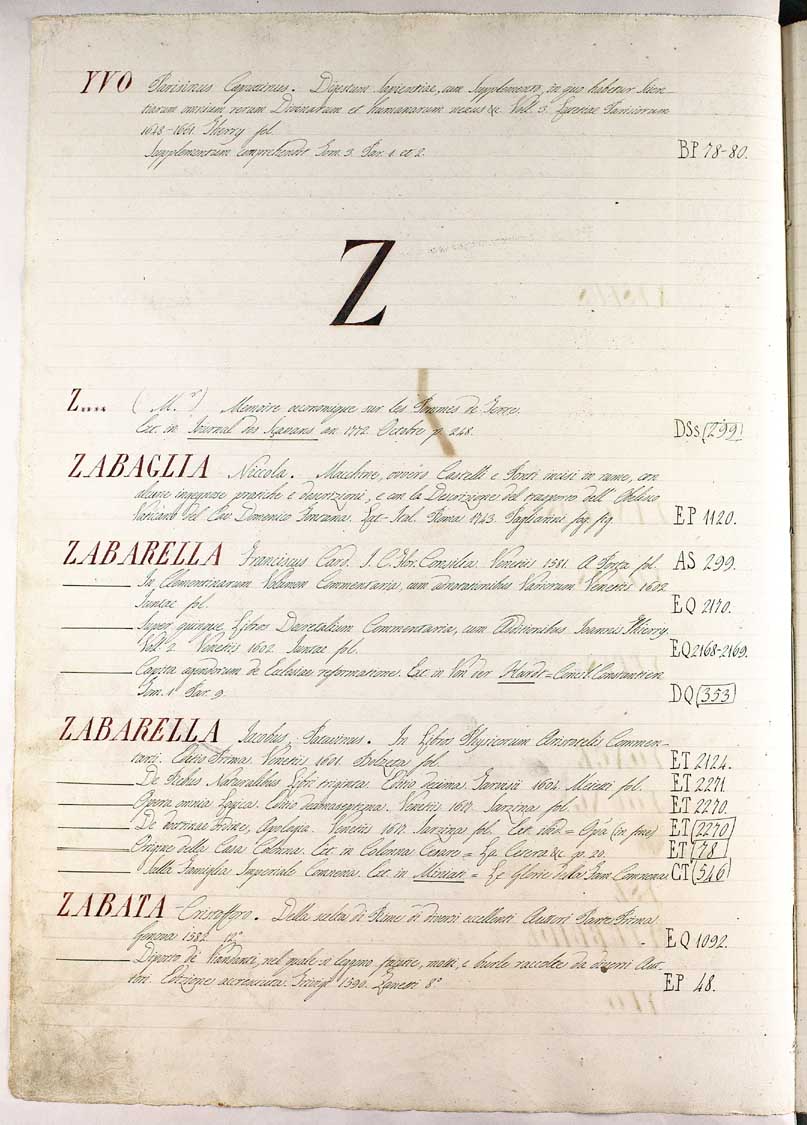 YVO Parisinus Capucinus. Digestum Sapientiae, cum Supplemento, in quo habetur Scien-
tiarum omnium rerum Divinarum et humanarum nexus &c. Voll. 3. Lutetiae Parisiorum
1648-1661. Thierry fol.
Supplementum comprehendit Tom. 3. Par. 1. et 2. BP 78-80.
Z
Z.... (M.r) Memoire oeconomique sur les Pommes de Terre.
Ext. in Journal des Savans an. 1772. Octobre p. 248. DSs (299)
ZABAGLIA Niccola. Macchine, ovvero Castelli e Ponti incisi in rame, con
alcune ingegnose pratiche e descrizioni, e con la Descrizione del trasporto dell' Obelisco
Vaticano del Cav. Domenico Fontana. Lat-Ital. Roma 1743. Pagliarini fog. fig. EP 1120.
ZABARELLA Franciscus Card. I. C. Flor. Consilia. Venetiis 1581. A Porta fol. AS 299.
In Clementinarum Volumen Commentaria, cum adnotationibus Variorum. Venetiis 1602
Juntae fol. EQ 2170.
Super quinque Libros Decretalium Commentaria, cum Additionibus Joannis Thierry.
Voll. 2. Venetiis 1602. Juntae fol. EQ 2168-2169.
Capita agendorum de Ecclesiae reformatione. Ext. in Von der Hardt = Concil. Constantien.
Tom. 1. Par. 9. DQ (353)
ZABARELLA Jacobus, Patavinus. In Libros Physicorum Aristotelis Commen-
tarii. Editio Prima. Venetiis 1601. Bolzetta fol. ET 2124.
De Rebus Naturalibus Libri triginta. Editio decima. Tarvisii 1604. Meietti fol. ET 2271.
Opera omnia Logica. Editio decimaseptima. Venetiis 1617. Sarzina fol. ET 2270.
De doctrinae ordine, Apologia. Venetiis 1617. Sarzina fol. Ext. ibid. = Opa (in fine) ET (2270)
Origine della Casa Colonna. Ext. in Colonna Cesare = La Cesera &c. p. 20. ET (78)
Dalla Famiglia Imperiale Comnena. Ext. in Miniati = Le Glorie della Fam. Comnena CT (546)
ZABATA Cristoffero. Della scelta di Rime di diversi eccellenti Autori Parte Prima
Genova 1582. 12° EQ 1092.
Diporto de' Viandanti, nel quale si leggono facezie, motti, e burle raccolte da diversi Aut-
tori. Edizione accresciuta. Trivigi 1590. Zanetti 8° EP 48.